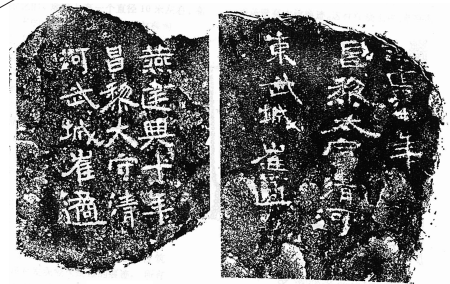 燕建興十年
昌黎大守清
河武城崔遹
興十年
昌黎太守清河
東武城崔遹